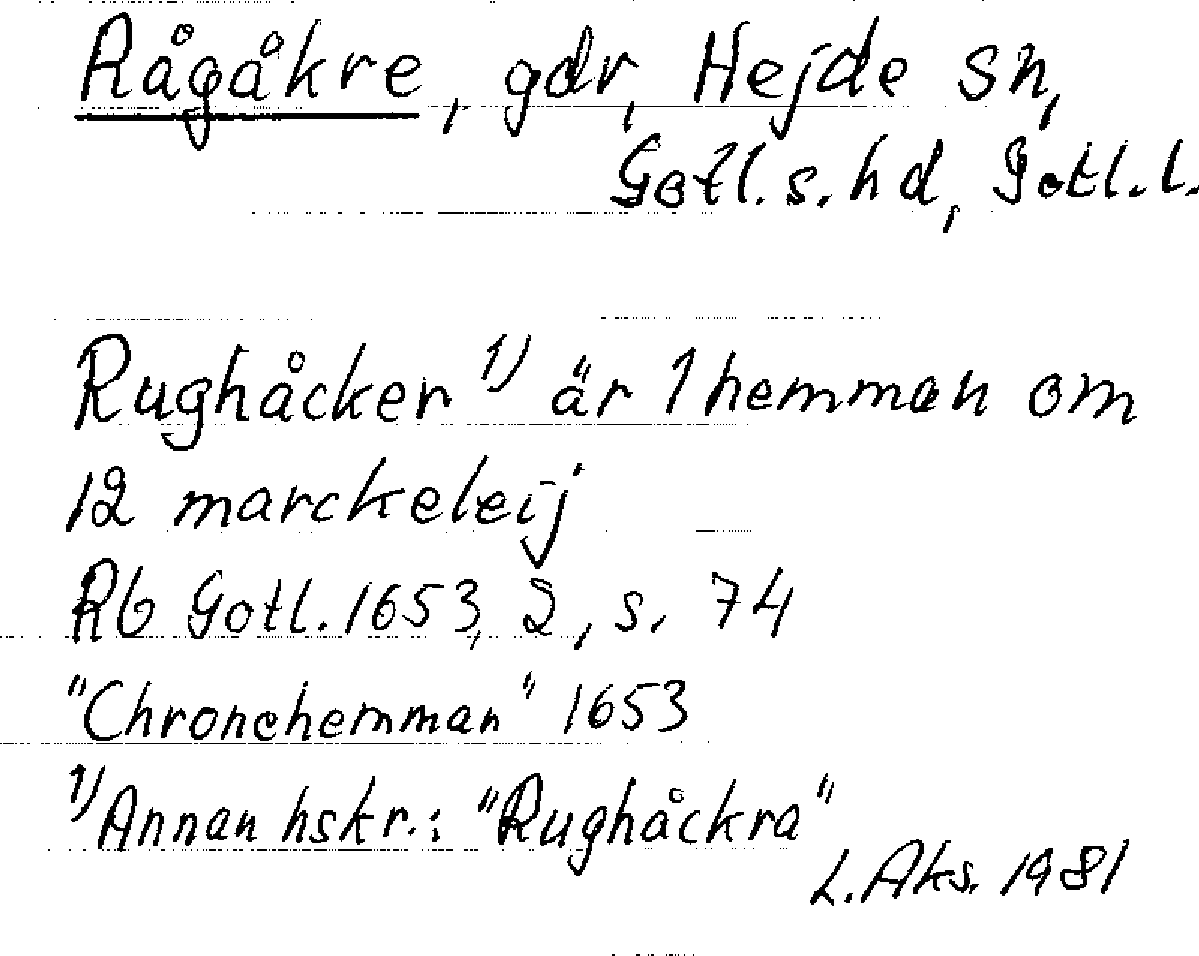 Rågåkre, gdr, Hejde sn,
Gotl. s. hd, Gotl. l.
Rughåcker 1) är 1 hemman om
12 marckeleij
Rb Gotl. 1653, 2, s. 74
"Chronehemman" 1653
1) Annan hskr.: "Rughåckra"
L. Aks. 1981